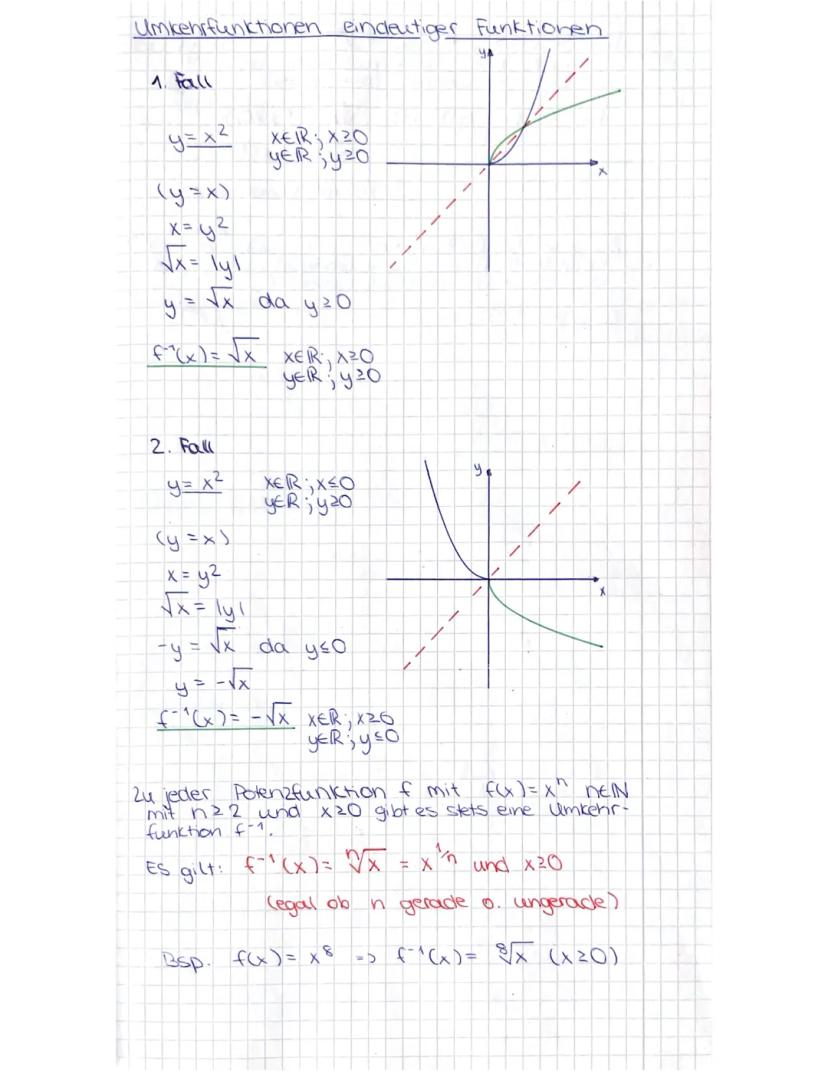 Umkehrfunktionen eindeutiger Funktionen
y
1. Fall
y = x² x∈ℝ ; x≥0
y∈ℝ ; y≥0
x
(y = x)
x = y²
√x = |y|
y = √x da y≥0
f⁻¹(x) = √x x∈ℝ ; x≥0
y∈ℝ ; y≥0
2. Fall
y
y = x² x∈ℝ ; x≤0
y∈ℝ ; y≥0
(y = x)
x = y²
x
√x = |y|
-y = √x da y≤0
y = -√x
f⁻¹(x) = -√x x∈ℝ ; x≥0
y∈ℝ ; y≤0
Zu jeder Potenzfunktion f mit f(x) = xⁿ n∈ℕ
mit n≥2 und x≥0 gibt es stets eine Umkehr-
funktion f⁻¹.
Es gilt: f⁻¹(x) = ⁿ√x = x^1/n und x≥0
(egal ob n gerade o. ungerade)
Bsp. f(x) = x⁸ => f⁻¹(x) = ⁸√x (x≥0)